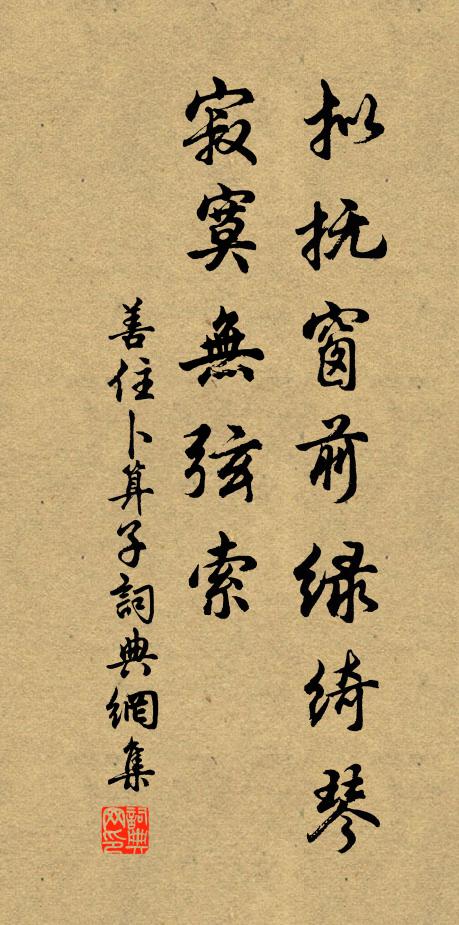 拟抚窗前绿绮琴
寂寞無弦索
善住卜算子詞典網集
詞典网印